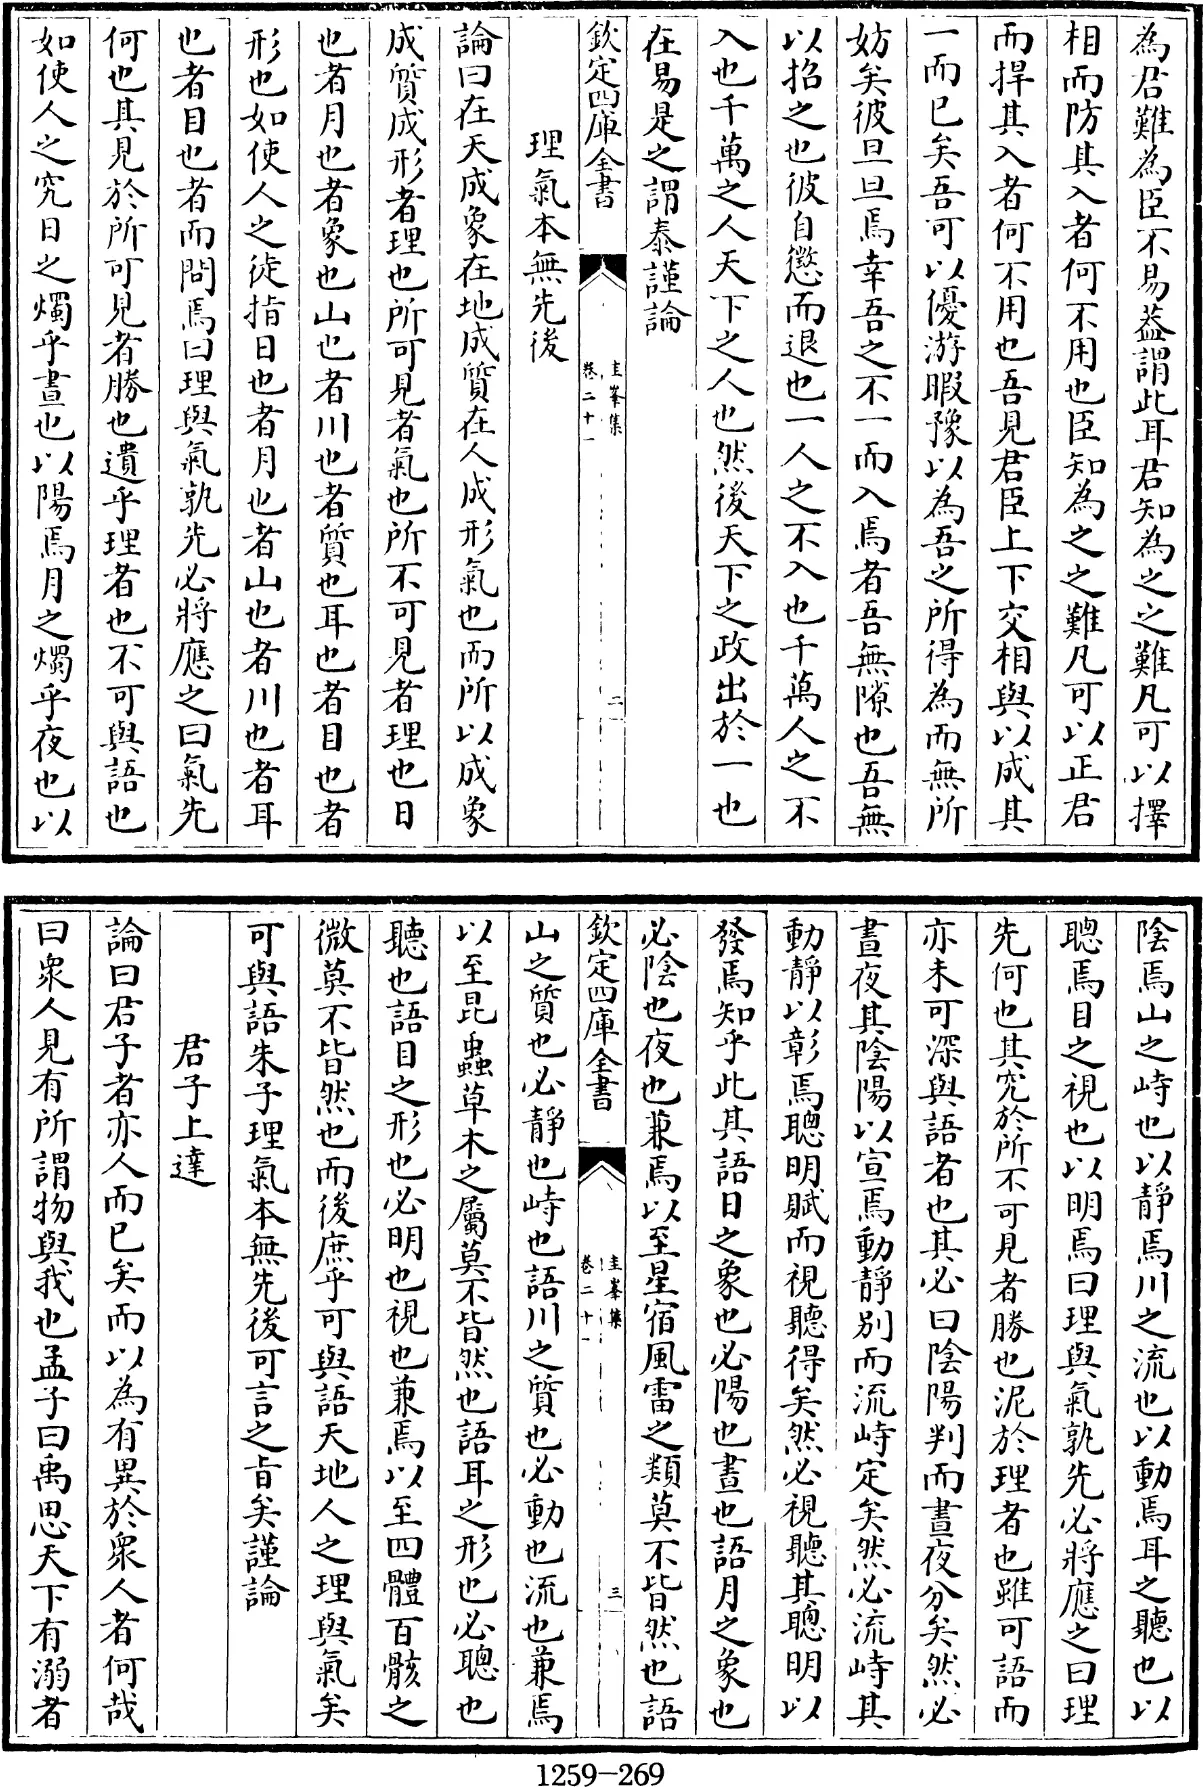 為君難為臣不易葢謂此耳君知為之之難凡可以擇
相而防其入者何不用也臣知為之之難凡可以正君
而捍其入者何不用也吾見君臣上下交相與以成其
一而已矣吾可以優游暇豫以為吾之所得為而無所
妨矣彼旦旦焉幸吾之不一而入焉者吾無隙也吾無
以招之也彼自懲而退也一人之不入也千萬人之不
入也千萬之人天下之人也然後天下之政出於一也
在易是之謂泰謹論
欽定四庫全書
圭峯集
卷二十一
二
理氣本無先後
論曰在天成象在地成質在人成形氣也而所以成象
成質成形者理也所可見者氣也所不可見者理也日
也者月也者象也山也者川也者質也耳也者目也者
形也如使人之徒指日也者月也者山也者川也者耳
也者目也者而問焉曰理與氣孰先必將應之曰氣先
何也其見於所可見者勝也遺乎理者也不可與語也
如使人之究日之燭乎晝也以陽焉月之燭乎夜也以
陰焉山之峙也以靜焉川之流也以動焉耳之聽也以
聰焉目之視也以明焉曰理與氣孰先必將應之曰理
先何也其究於所不可見者勝也泥於理者也雖可語而
亦未可深與語者也其必曰陰陽判而晝夜分矣然必
晝夜其陰陽以宣焉動靜別而流峙定矣然必流峙其
動靜以彰焉聰明賦而視聽得矣然必視聽其聰明以
發焉知乎此其語日之象也必陽也晝也語月之象也
必陰也夜也兼焉以至星宿風雷之類莫不皆然也語
欽定四庫全書
圭峯集
卷二十一
三
山之質也必靜也峙也語川之質也必動也流也兼焉
以至昆蟲草木之屬莫不皆然也語耳之形也必聰也
聽也語目之形也必明也視也兼焉以至四體百骸之
微莫不皆然也而後庶乎可與語天地人之理與氣矣
可與語朱子理氣本無先後可言之旨矣謹論
君子上達
論曰君子者亦人而已矣而以為有異於衆人者何哉
曰衆人見有所謂物與我也孟子曰禹思天下有溺者
1259-269